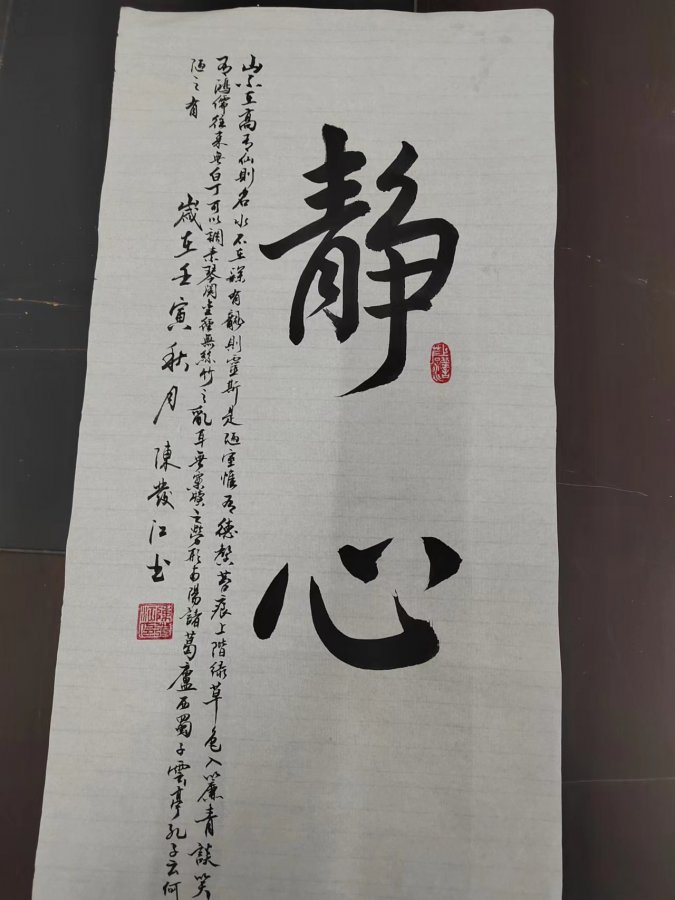 静心
山不在高有仙則名水不在深有龍則靈斯是陋室惟有德馨苔痕上階綠草色入簾青談笑
有鴻儒往來無白丁可以調素琴閱金經無絲竹之亂耳無案牘之勞形南陽諸葛廬西蜀子雲亭孔子云何
陋之有
歲在壬寅秋月陳發江书